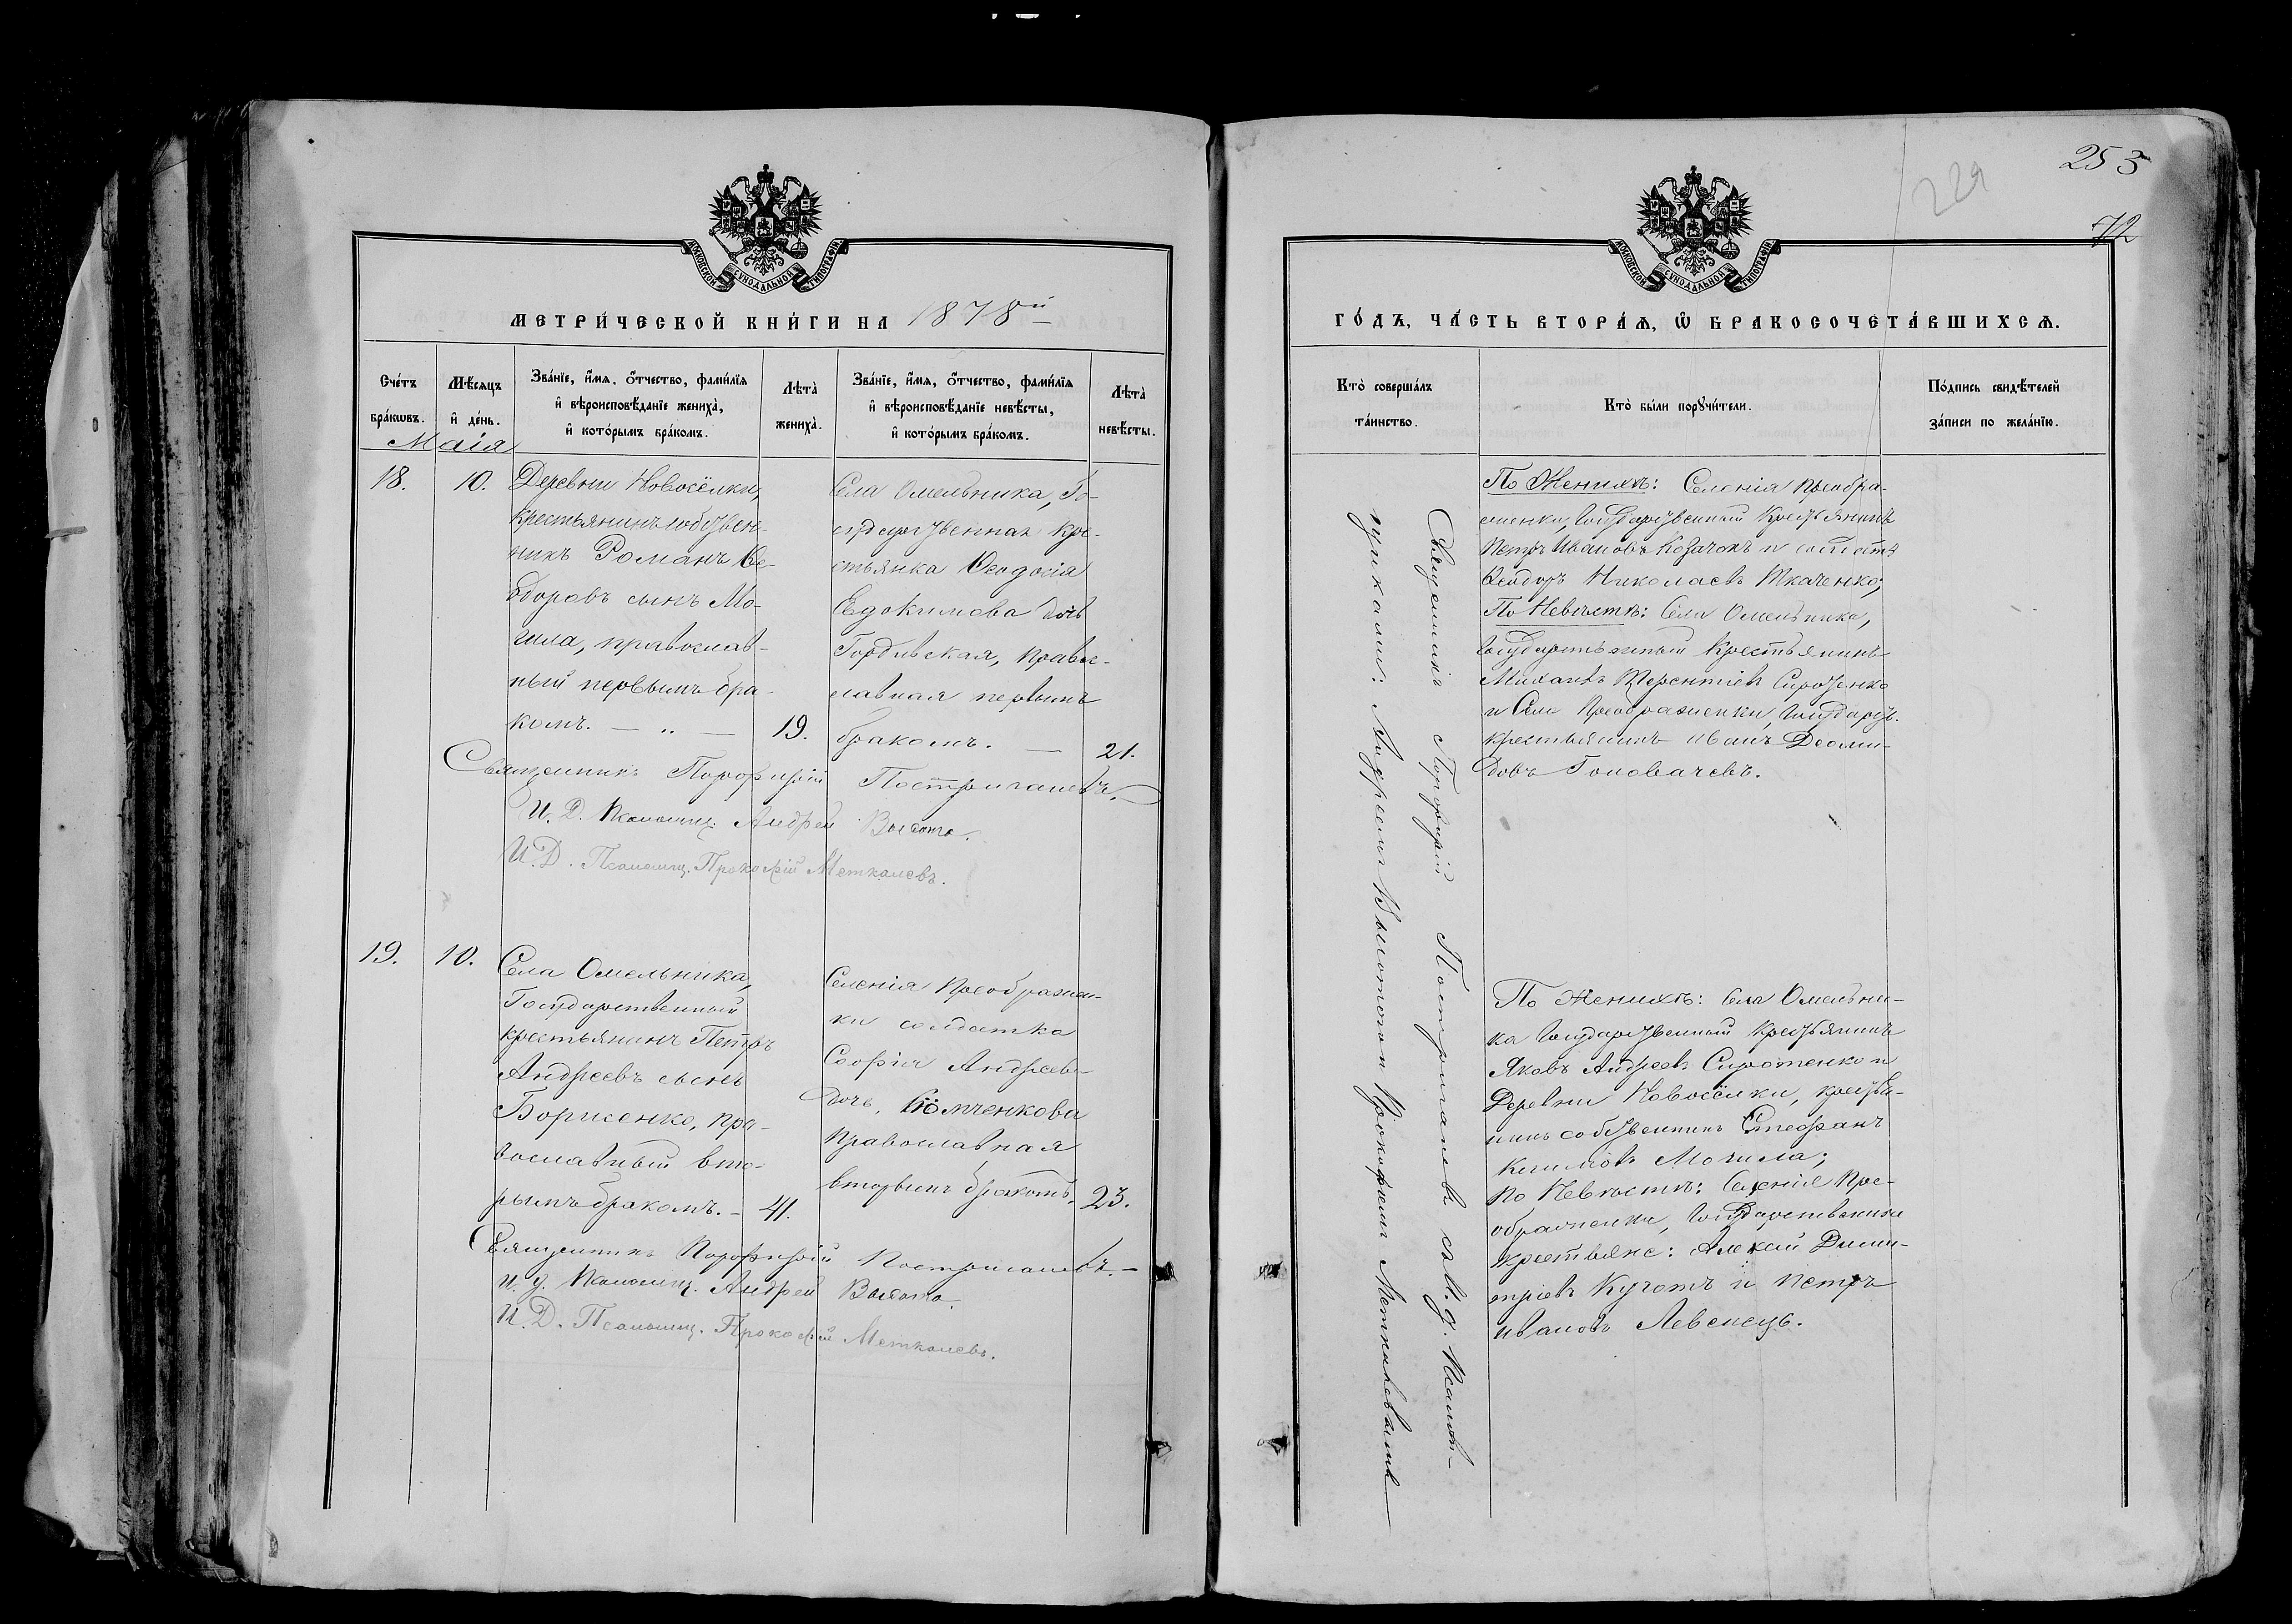 МОСКОВСКОЙ СѴНОДАЛЬНОЙ ТИПОГРАФІИ
МЕТРИ́ЧЕСКОЙ КНИ́ГИ НА 1878ой
Сче́тъ бра́кωвъ.
Мѣ́сяцъ и҆ де́нь.
Зва́нїе, и҆́мя, о҆́тчество, фами́лїя
и҆ вѣроисповѣ́данїе жениха̀,
и҆ кото́рымъ бра́комъ.
Лѣ́та̀
жениха̀.
Зва́нїе, и҆́мя, о҆́тчество, фами́лїя
и҆ вѣроисповѣ́данїе невѣ́сты,
и҆ кото́рымъ бра́комъ.
Лѣ́та̀
невѣ́сты.
Маія
18.
10.
Деревни Новосёлки,
крестьянинъ собствен-
никъ Романъ Ѳе-
доровъ сынъ Мо-
гила, православ-
ный первымъ бра-
комъ. — „ —
19.
Села Омельника, Го-
сударственная кре-
стьянка Ѳеодосія
Евдокимова дочь
Гордѣевская, право-
славная первымъ
бракомъ. —
21.
Священникъ Порфирій Постригачевъ.
И. Д. Псаломщ. Андрей Высота.
И. Д. Псаломщ. Прокофій Меткалевъ.
19.
10.
Села Омельника,
Государственный
крестьянинъ Петръ
Андреевъ сынъ
Борисенко, пра-
вославный вто-
рымъ бракомъ. —
41.
Селенія Преображен-
ки солдатка
Софія Андреев.
дочь,
православная
вторымъ бракомъ.
23.
Священникъ Порфирій Постригачевъ. —
И. д. Псаломщ. Андрей Высота.
И. Д. Псаломщ. Прокофій Меткалевъ.
253
229
72
МОСКОВСКОЙ СѴНОДАЛЬНОЙ ТИПОГРАФІИ
ГО́ДЪ, ЧА́СТЬ ВТОРА́Я, Ѡ҆ БРАКОСОЧЕТА́ВШИХСЯ.
Кто̀ соверша́лъ
та́инство.
Кто̀ бы́ли порꙋчи́тели.
По́дпись свидѣ́телей
за́писи по жела́нїю.
Священникъ Порфирій Постригачевъ съ И. д. Псалом-
щиками: Андреемъ Высотою и Прокофіемъ Меткалевымъ —
По Женихѣ: Селенія Преобра-
женки, Государственный Крестьянинъ
Петръ Ивановъ Козачокъ и
Ѳеодоръ Николаевъ Ткаченко;
По Невѣстѣ: Села Омельника,
Государственный Крестьянинъ
Михаилъ Терентіевъ Сиротенко
и Села Преображенки, Государств.
крестьянинъ Иванъ Деоми-
довъ Головачевъ.
По Женихѣ: Села Омельни-
ка Государственный Крестьянинъ
Яковъ Андреевъ Сиротенко и
Деревни Новосёлки, крестья-
нинъ собственникъ Стефанъ
Могила;
По Невѣстѣ: Селенія Пре-
ображенки, Государственные
крестьяне: Алексѣй Дими-
тріевъ и Петръ
Ивановъ Левенецъ.